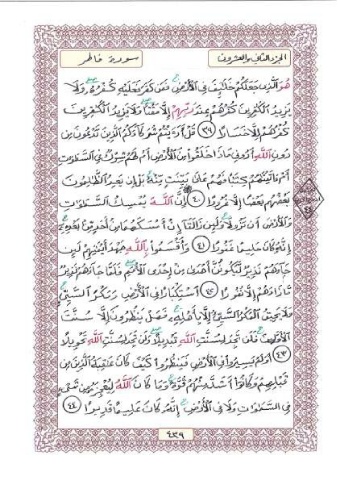 الجزء الثاني والعشرون
سورة فاطر
هُوَ ٱلَّذِى جَعَلَكُمْ خَلَٰٓئِفَ فِى ٱلْأَرْضِ فَمَن كَفَرَ فَعَلَيْهِ كُفْرُهُۥ وَلَا
يَزِيدُ ٱلْكَٰفِرِينَ كُفْرُهُمْ عِندَ رَبِّهِمْ إِلَّا مَقْتًا وَلَا يَزِيدُ ٱلْكَٰفِرِينَ
كُفْرُهُمْ إِلَّا خَسَارًا ٣٩ قُلْ أَرَءَيْتُمْ شُرَكَآءَكُمُ ٱلَّذِينَ تَدْعُونَ مِن
دُونِ ٱللَّهِ أَرُونِى مَاذَا خَلَقُوا۟ مِنَ ٱلْأَرْضِ أَمْ لَهُمْ شِرْكٌ فِى ٱلسَّمَٰوَٰتِ
أَمْ ءَاتَيْنَٰهُمْ كِتَٰبًا فَهُمْ عَلَىٰ بَيِّنَتٍ مِّنْهُ بَلْ إِن يَعِدُ ٱلظَّٰلِمُونَ
بَعْضُهُم بَعْضًا إِلَّا غُرُورًا ٤٠ إِنَّ ٱللَّهَ يُمْسِكُ ٱلسَّمَٰوَٰتِ
وَٱلْأَرْضَ أَن تَزُولَا وَلَئِن زَالَتَآ إِنْ أَمْسَكَهُمَا مِنْ أَحَدٍ مِّنۢ بَعْدِهِۦٓ
إِنَّهُۥ كَانَ حَلِيمًا غَفُورًا ٤١ وَأَقْسَمُوا۟ بِٱللَّهِ جَهْدَ أَيْمَٰنِهِمْ لَئِن
جَآءَهُمْ نَذِيرٌ لَّيَكُونُنَّ أَهْدَىٰ مِنْ إِحْدَى ٱلْأُمَمِ فَلَمَّا جَآءَهُمْ نَذِيرٌ
مَّا زَادَهُمْ إِلَّا نُفُورًا ٤٢ ٱسْتِكْبَارًا فِى ٱلْأَرْضِ وَمَكْرَ ٱلسَّيِّئِ
وَلَا يَحِيقُ ٱلْمَكْرُ ٱلسَّيِّئُ إِلَّا بِأَهْلِهِۦ فَهَلْ يَنظُرُونَ إِلَّا سُنَّتَ
ٱلْأَوَّلِينَ فَلَن تَجِدَ لِسُنَّتِ ٱللَّهِ تَبْدِيلًا وَلَن تَجِدَ لِسُنَّتِ ٱللَّهِ تَحْوِيلًا
٤٣ أَوَلَمْ يَسِيرُوا۟ فِى ٱلْأَرْضِ فَيَنظُرُوا۟ كَيْفَ كَانَ عَٰقِبَةُ ٱلَّذِينَ مِن
قَبْلِهِمْ وَكَانُوٓا۟ أَشَدَّ مِنْهُمْ قُوَّةً وَمَا كَانَ ٱللَّهُ لِيُعْجِزَهُۥ مِن شَىْءٍ
فِى ٱلسَّمَٰوَٰتِ وَلَا فِى ٱلْأَرْضِ إِنَّهُۥ كَانَ عَلِيمًا قَدِيرًا ٤٤
٤٣٩